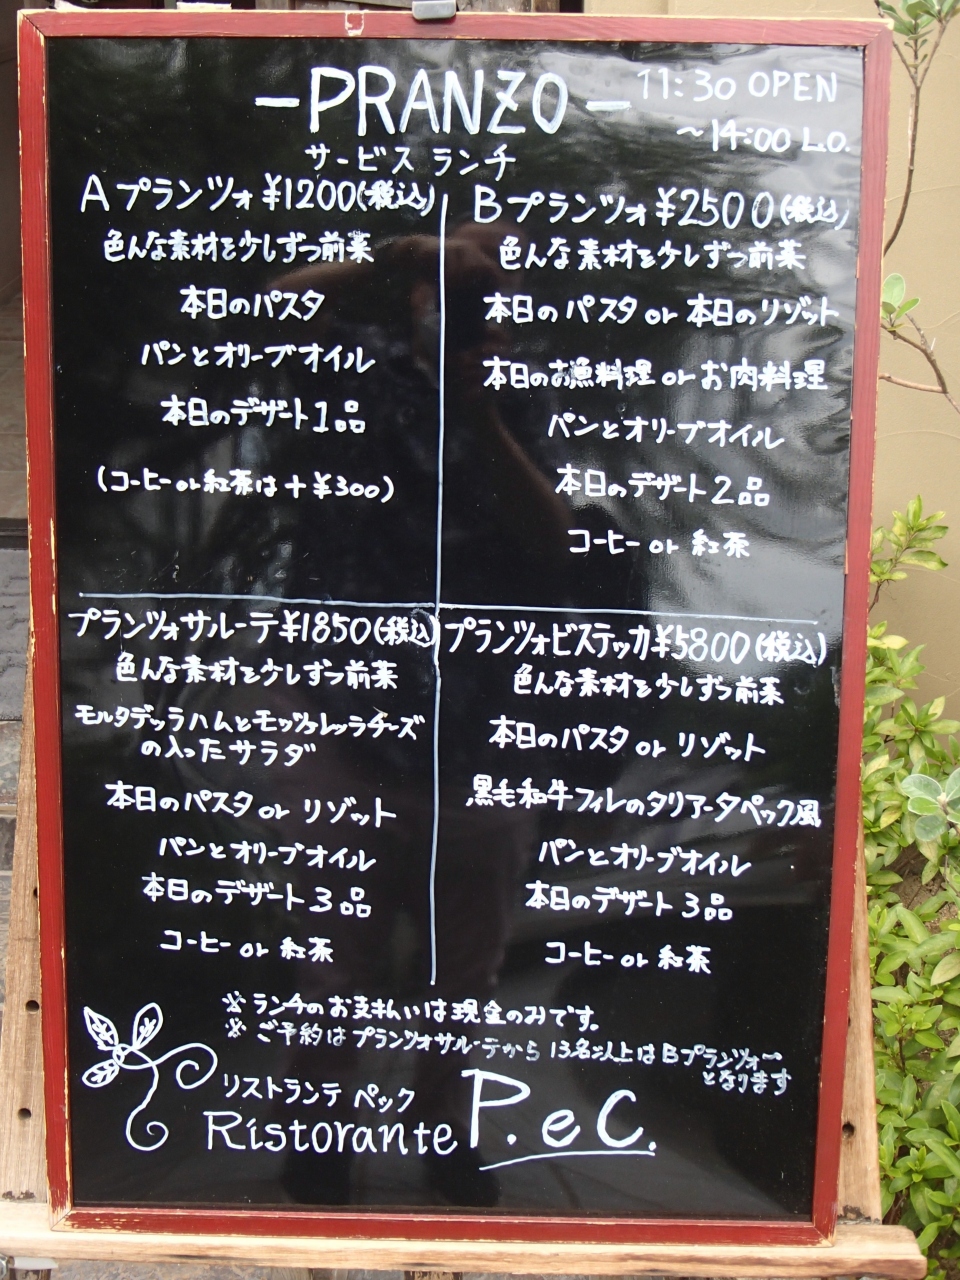 -PRANZO-
11:30 OPEN
～14:00 L.O.
サービスランチ
Aプランツォ ¥1200(税込)
色んな素材を少しずつ前菜
本日のパスタ
パンとオリーブオイル
本日のデザート1品
(コーヒー or 紅茶は+¥300)
Bプランツォ ¥2500(税込)
色んな素材を少しずつ前菜
本日のパスタ or 本日のリゾット
本日のお魚料理 or お肉料理
パンとオリーブオイル
本日のデザート2品
コーヒー or 紅茶
プランツォサルーテ ¥1850(税込)
色んな素材を少しずつ前菜
モルタデッラハムとモッツァレッラチーズ
の入ったサラダ
本日のパスタ or リゾット
パンとオリーブオイル
本日のデザート3品
コーヒー or 紅茶
プランツォビステッカ ¥5800(税込)
色んな素材を少しずつ前菜
本日のパスタ or リゾット
黒毛和牛フィレのタリアータペック風
パンとオリーブオイル
本日のデザート3品
コーヒー or 紅茶
※ランチのお支払いは現金のみです。
※ご予約はプランツォサルーテから 13名以上はBプランツォ〜
となります
リストランテ ペック
Ristorante P.e C.